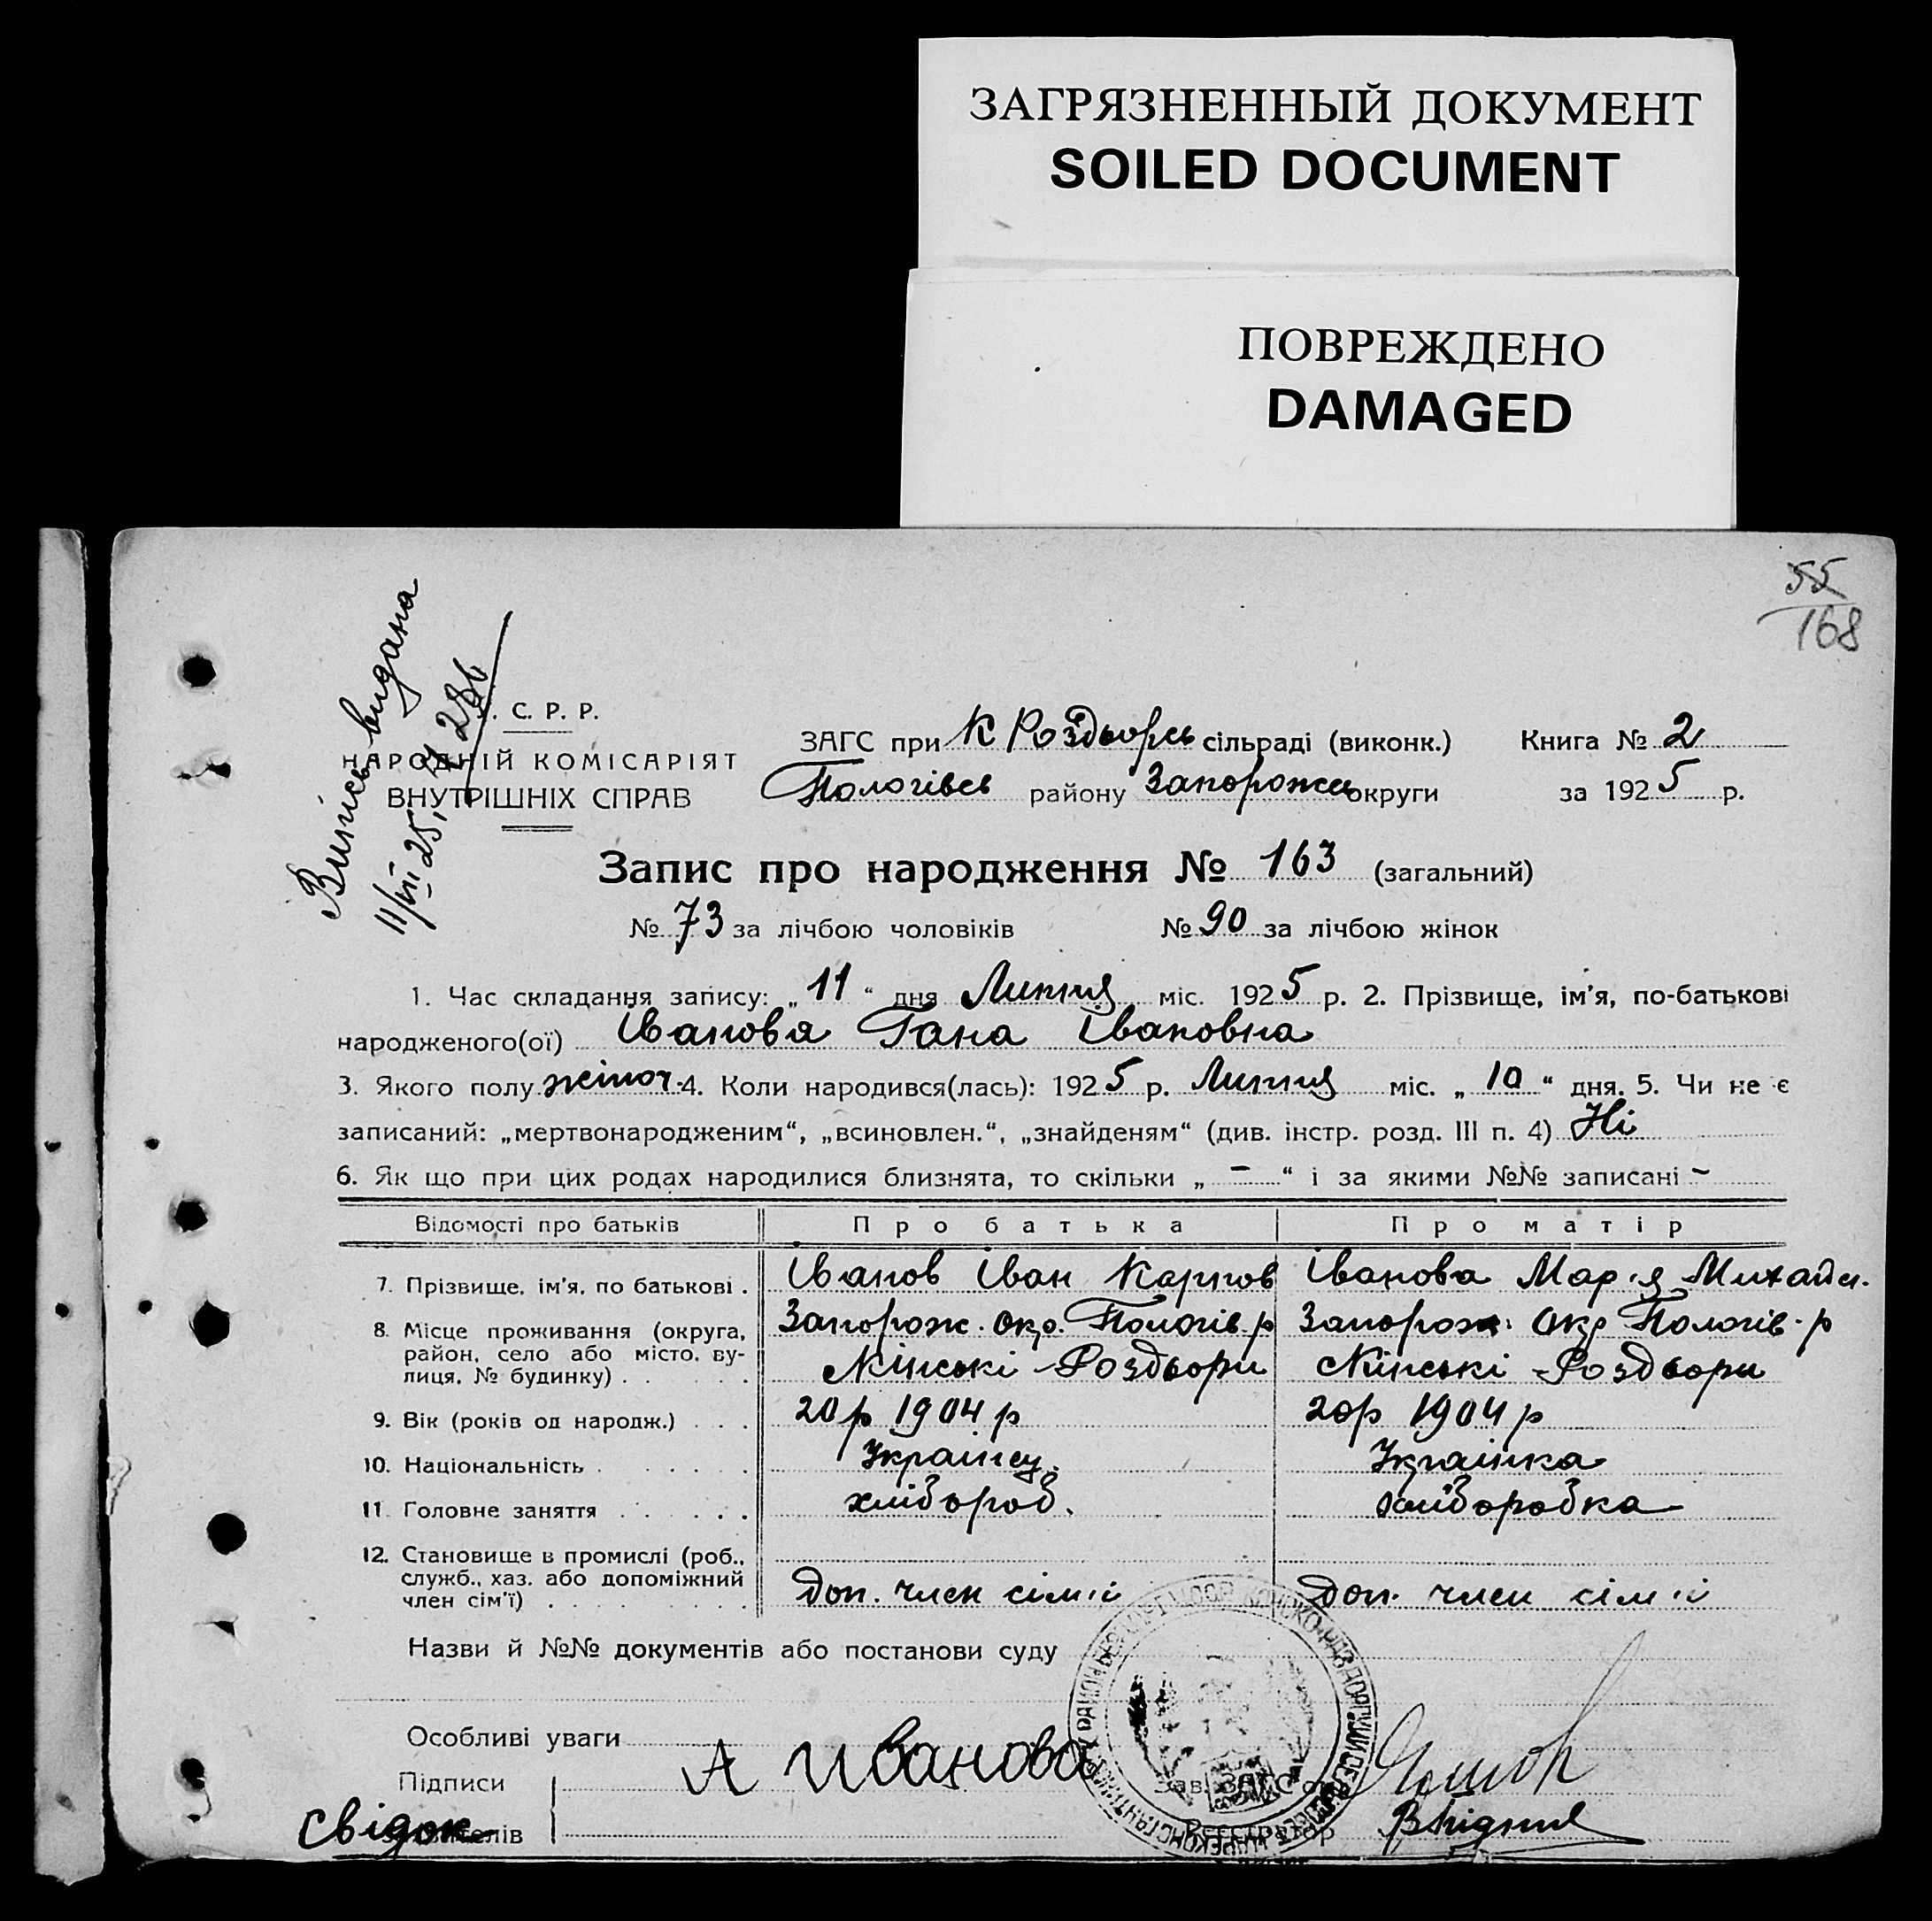 ЗАГРЯЗНЕННЫЙ ДОКУМЕНТ
SOILED DOCUMENT
ПОВРЕЖДЕНО
DAMAGED
55
168
Випись видана
11/VII 25
С. Р. Р.
НАРОДНІЙ КОМІСАРІЯТ
ВНУТРІШНІХ СПРАВ
ЗАГС при К Роздворсь сільраді (виконк.) Книга № 2
Пологівсь району Запорожсь округи за 1925 р.
Запис про народження № 163 (загальний)
№ 73 за лічбою чоловіків № 90 за лічбою жінок
1. Час складання запису: „11“ дня Липня міс. 1925 р. 2. Прізвище, ім'я, по-батькові
народженого(ої) Іванова Гана Івановна
3. Якого полу жіноч. 4. Коли народився(лась): 1925 р. Липня міс. „10“ дня. 5. Чи не є
записаний: „мертвонародженим“, „всиновлен.“, „знайденям“ (див. інстр. розд. III п. 4) Ні
6. Як що при цих родах народилися близнята, то скільки „ – “ і за якими №№ записані –
Відомості про батьків Про батька Про матір
7. Прізвище, ім'я, по батькові . Іванов Іван Карпов Іванова Марія Михайл.
8. Місце проживання (округа, Запорож. окр. Пологів р Запорож. окр Пологів. р
район, село або місто, ву-
лиця, № будинку) . . . Кінські Роздори Кінські Роздвори
9. Вік (років од народж.) . . . 20 р 1904 р 20р 1904 р
10. Національність . . . . . Українец. Українка
11. Головне заняття . . . . . хлібороб. хліборобка
12. Становище в промислі (роб.,
служб., хаз. або допоміжний
член сім'ї) . . . . . . . Доп. член сім'ї Доп. член сім'ї
Назви й №№ документів або постанови суду
Особливі уваги
Підписи А Иванова Зав. ЗАГС'ом
свідок Реєстратор